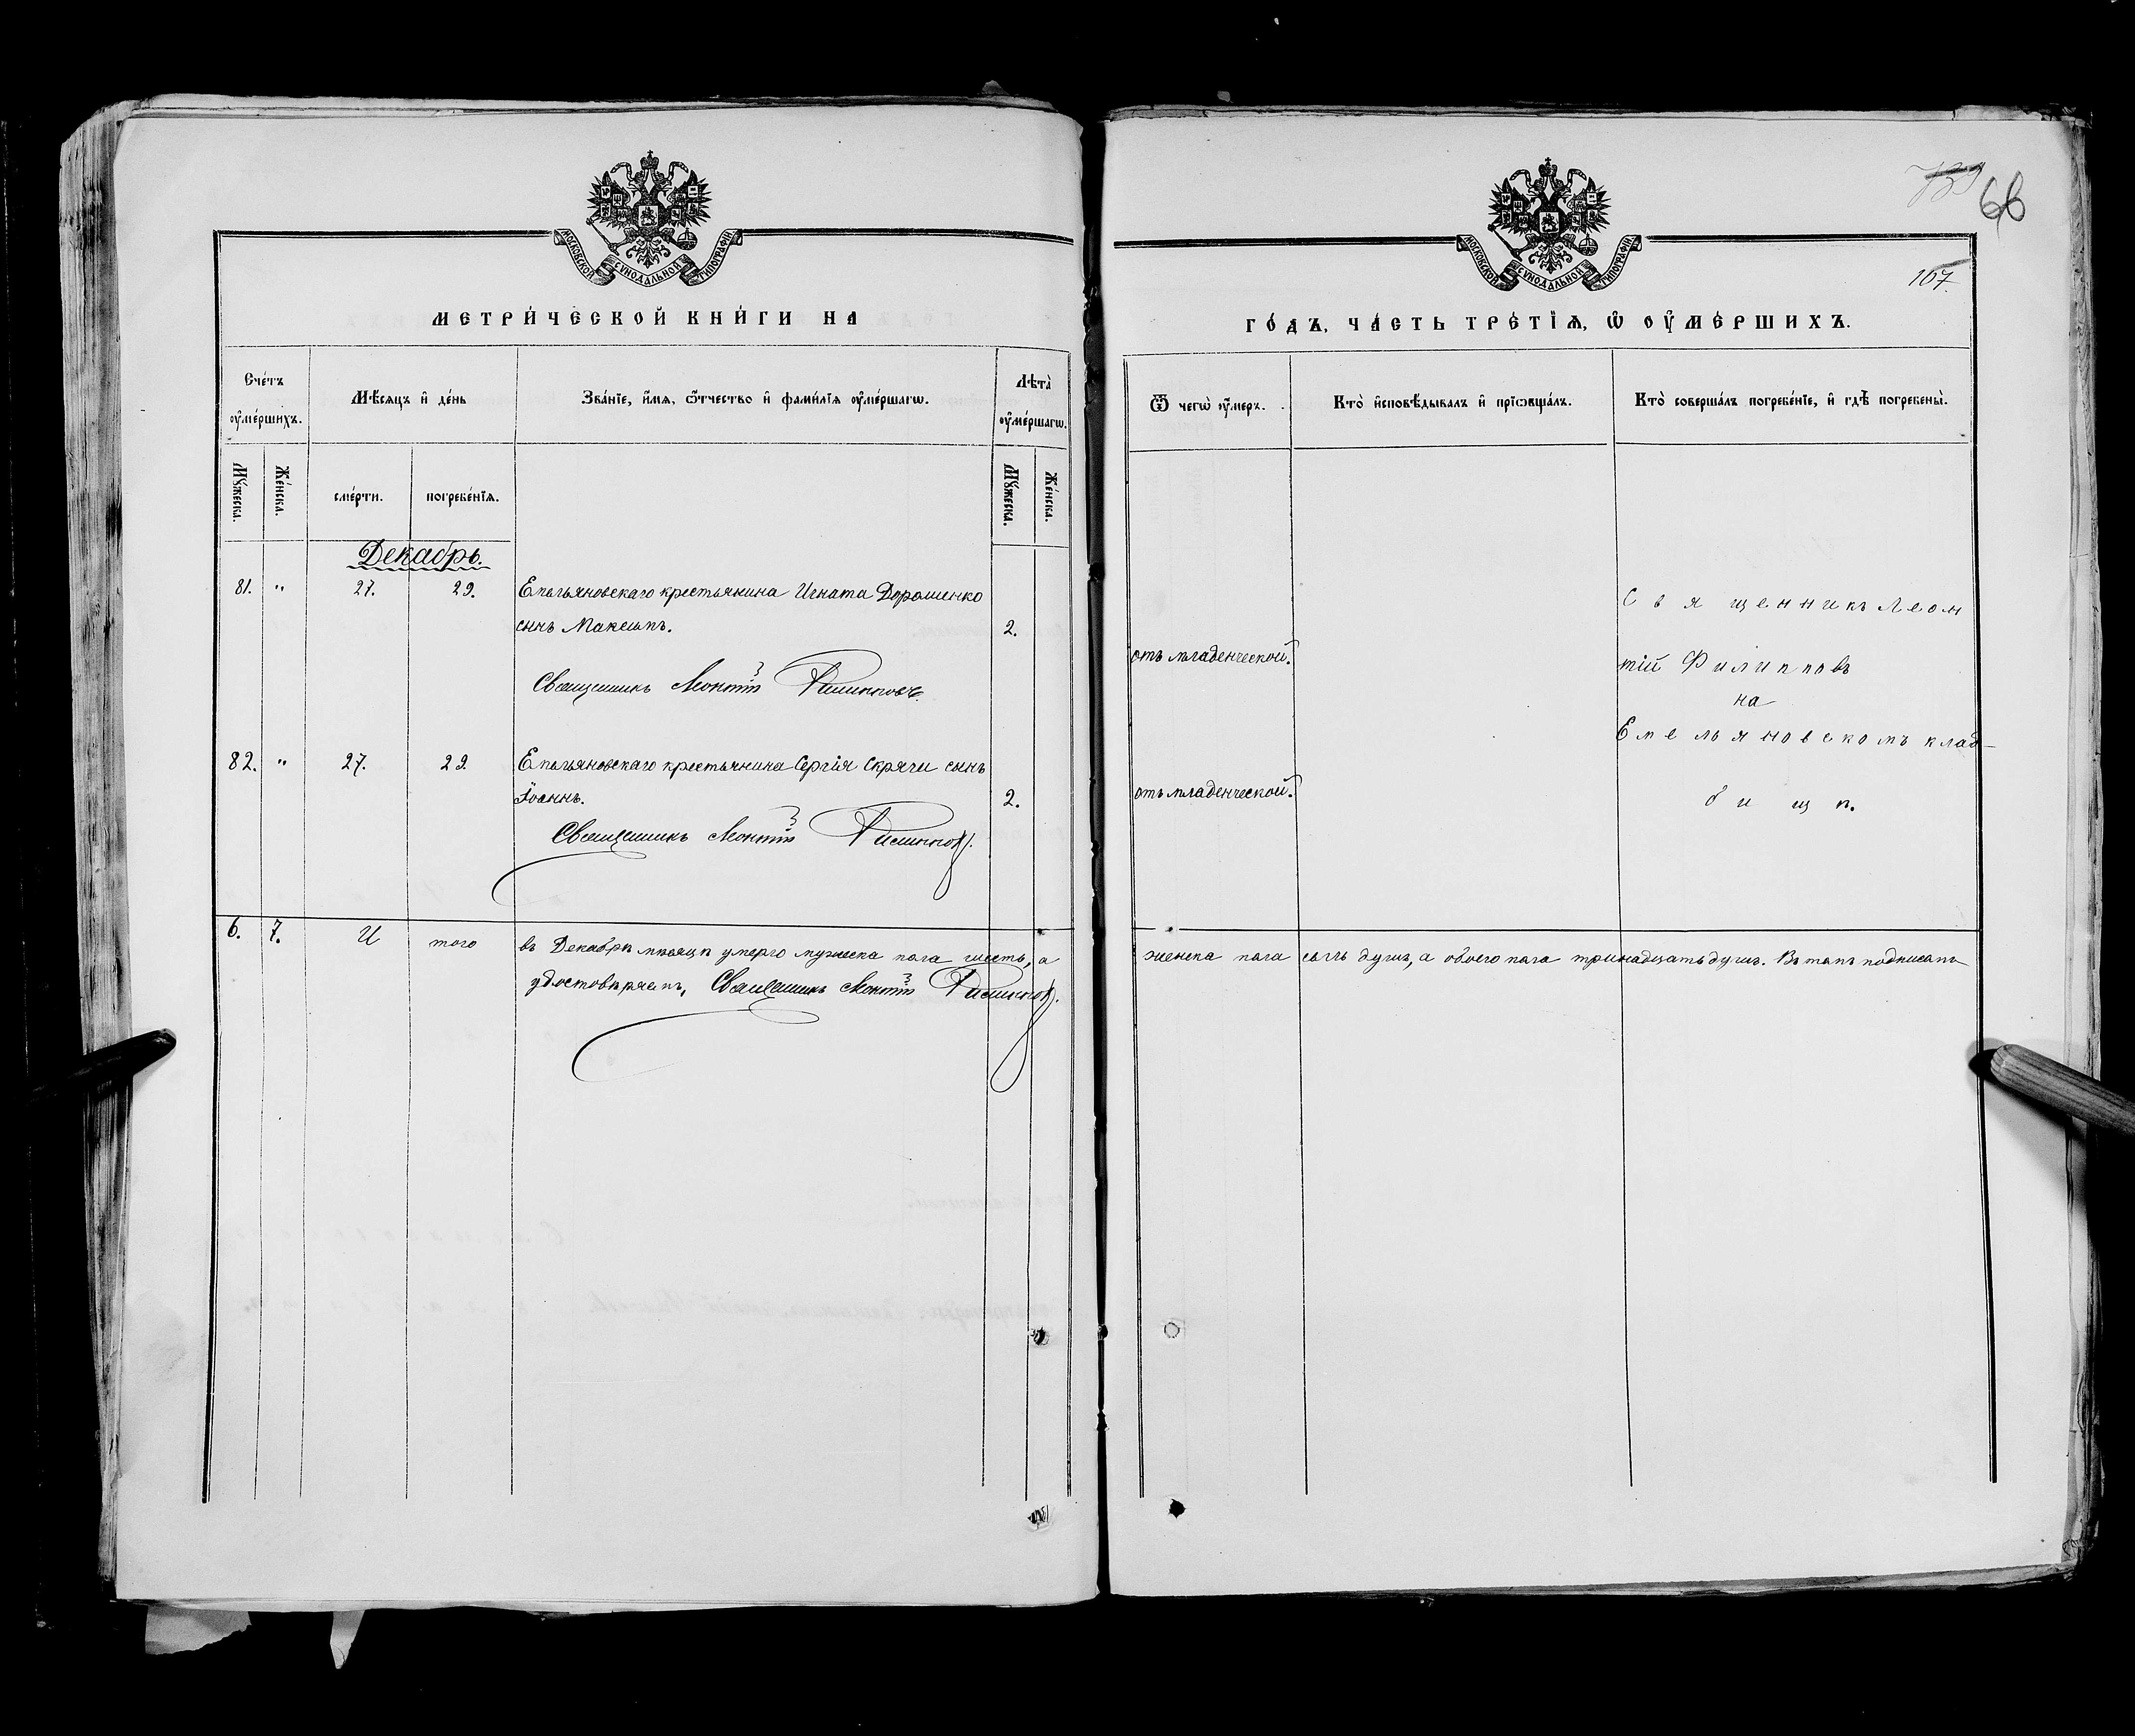 МОСКОВСКОЙ СѴНОДАЛЬНОЙ ТИПОГРАФІИ
МЕТРИ́ЧЕСКОЙ КНИ́ГИ НА
Сче́тъ оу҆ме́ршихъ.
Мѣ́сяцъ и҆ де́нь
Зва́нїе, и҆́мя, ѻ҆́тчество и҆ фами́лїя оу҆ме́ршагѡ.
Лѣта̀ оу҆ме́ршагѡ.
Мꙋ́жеска.
Же́нска.
сме́рти.
погребе́нїя.
Мꙋ́жеска.
Же́нска.
Декабрь.
81. " 27. 29. Емельяновскаго крестьянина Игната Дорошенко
сынъ Максимъ. 2.
Священникъ Леонтій Филипповъ.
82. " 27. 29. Емельяновскаго крестьянина Сергія Скрячи сынъ
Іоаннъ. 2.
Священникъ Леонтій Филипповъ.
6. 7. И того въ Декабрѣ мѣсяцѣ умерло мужеска пола шесть, а
удостовѣряемъ, Священникъ Леонтій Филипповъ.
66
167.
МОСКОВСКОЙ СѴНОДАЛЬНОЙ ТИПОГРАФІИ
ГО́ДЪ, ЧА́СТЬ ТРЕ́ТЇЯ, Ѡ҆ ОУ҆МЕ́РШИХЪ.
Ѿ чегѡ̀ оу҆́меръ.
Кто̀ и҆сповѣ́дывалъ и҆ прїѡбща́лъ.
Кто̀ соверша́лъ погребе́нїе, и҆ гдѣ̀ погребены̀.
Священникъ Леон
отъ младенческой.
тій Филипповъ
на
Емельяновскомъ клад-
отъ младенческой.
бищѣ.
женска пола семь душъ, а обоего пола тринадцать душъ. Въ томъ подписомъ